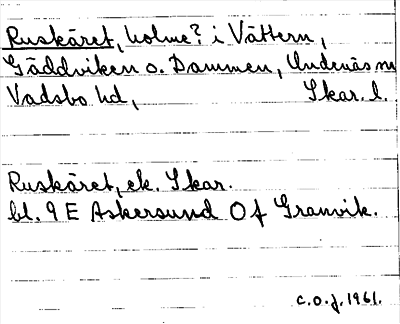 Ruskäret, holme? i Vättern,
Gäddviken o. Dammen, Undenäs sn
Vadsbo hd, Skar. l.
Ruskäret, ek. Skar.
bl. 9 E Askersund 0 f Granvik.
C.O.J. 1961.